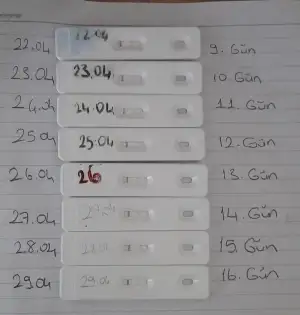 22.04 22.04 9. Gün
23.04 23.04 10. Gün
24.04 24.04 11. Gün
25.04 25.04 12. Gün
26.04 26 13. Gün
27.04 27.04 14. Gün
28.04 28.04 15. Gün
29.04 29.04 16. Gün